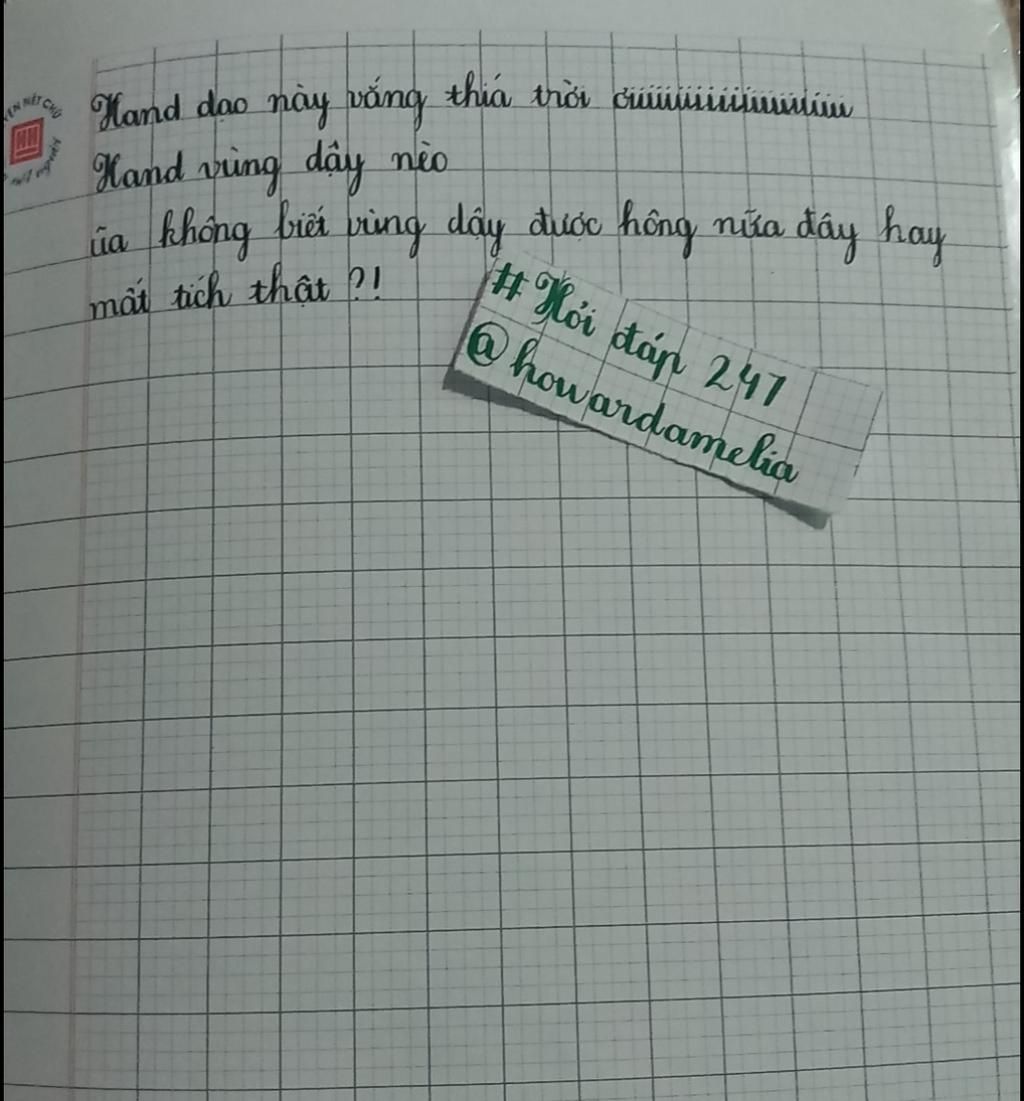 Hand dạo này vắng thiá trời ơiiiiiiiiiiiiiiiiiiiiiii
Hand vùng dậy nèo
ũa không biết vùng dậy được hông nữa đây hay
mất tích thật ?!
# Hỏi đáp 247
@howardamelia
NÉT CHỮ
NẾT NGƯỜI